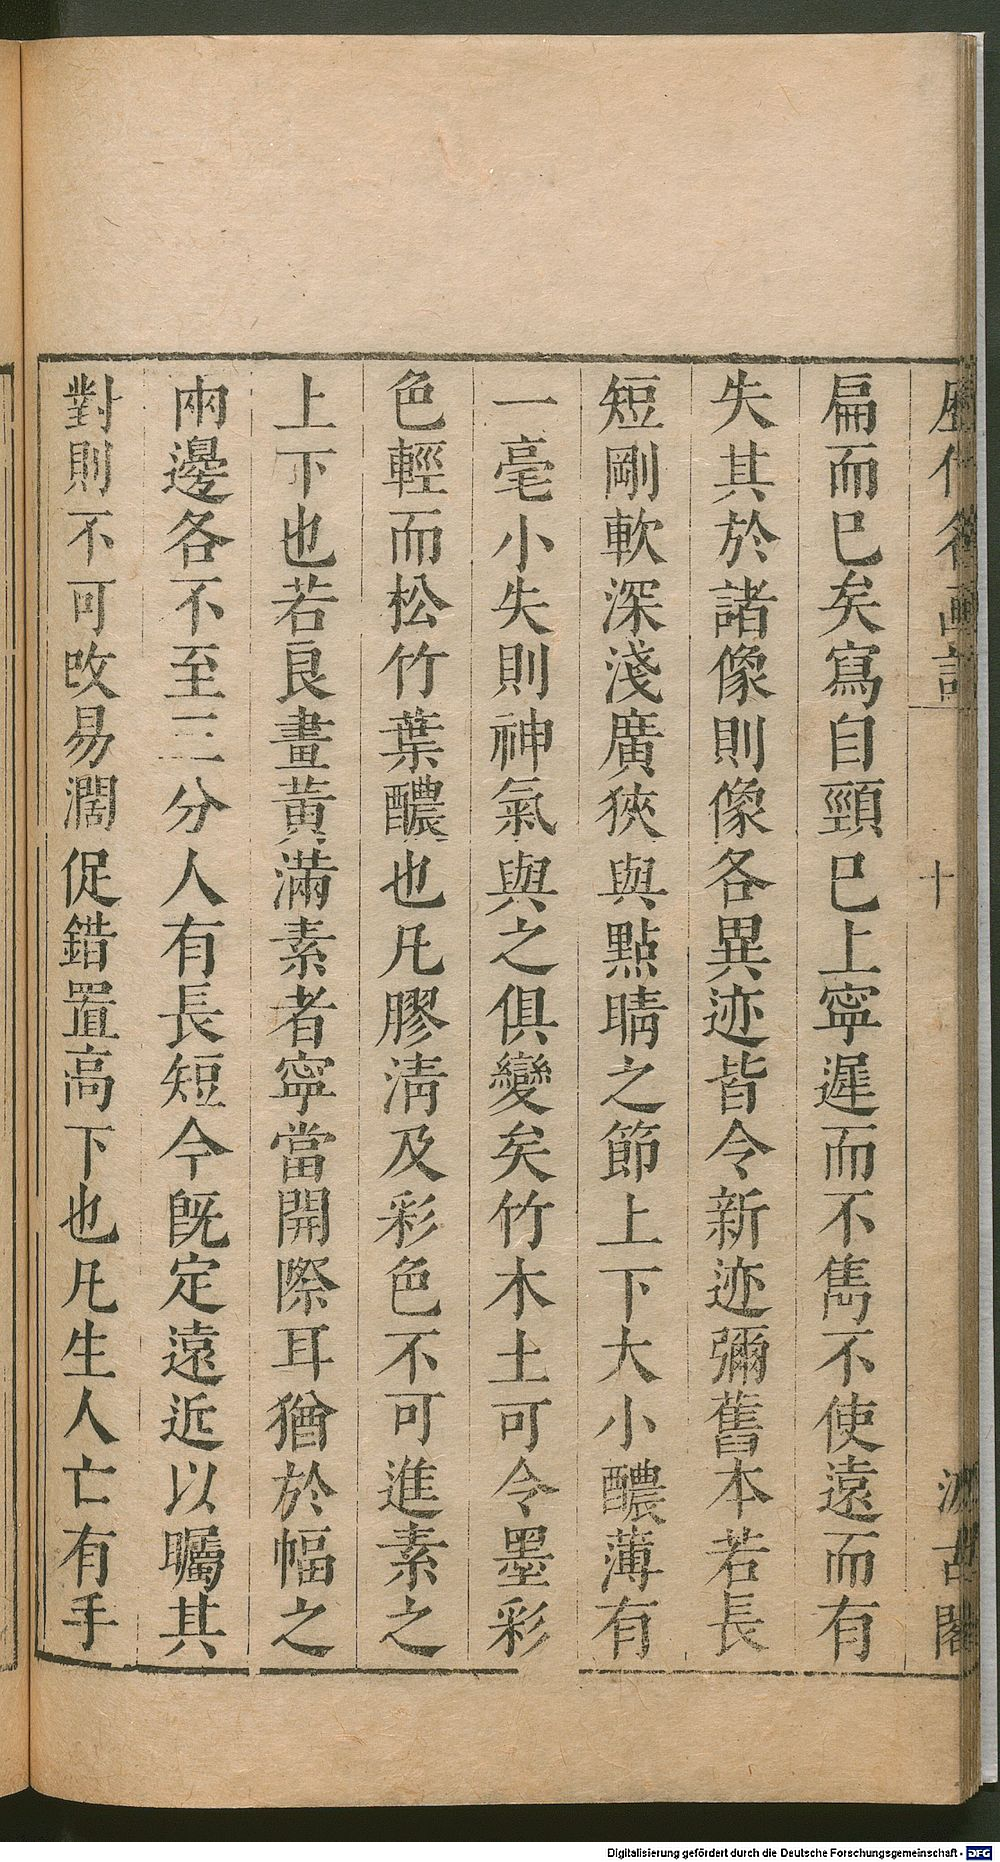 歷代名画記
十
汲古閣
扁而巳矣寫自頸巳上寧遲而不雋不使遠而有
失其於諸像則像各異迹皆令新迹彌舊本若長
短剛軟深淺廣狹與點睛之節上下大小醲薄有
一毫小失則神氣與之俱變矣竹木土可令墨彩
色輕而松竹葉醲也凡膠清及彩色不可進素之
上下也若良畫黃滿素者寧當開際耳猶於幅之
兩邊各不至三分人有長短今旣定遠近以矚其
對則不可攺易濶促錯置高下也凡生人亡有手
Digitalisierung gefördert durch die Deutsche Forschungsgemeinschaft - DFG